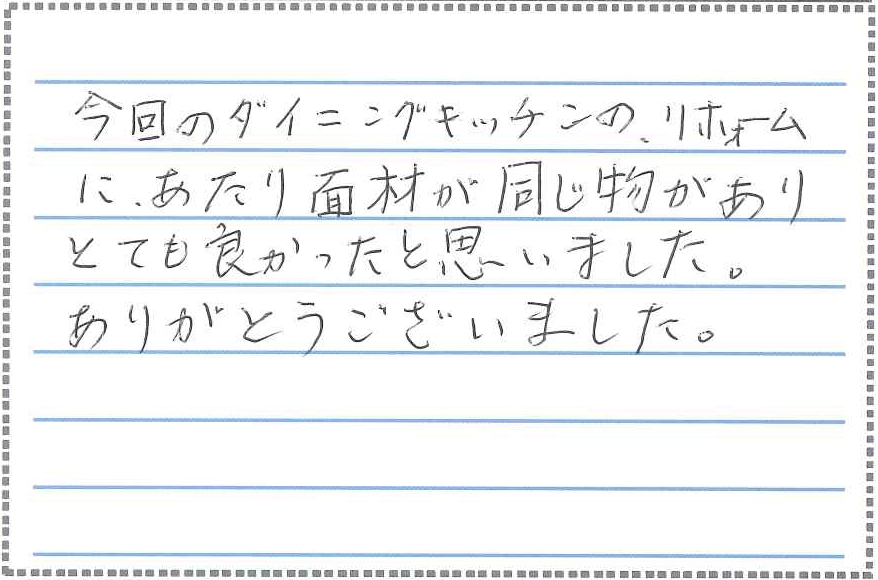 今回のダイニングキッチンの、リホォーム
に、あたり面材が同じ物があり
とても良かったと思いました。
ありがとうございました。